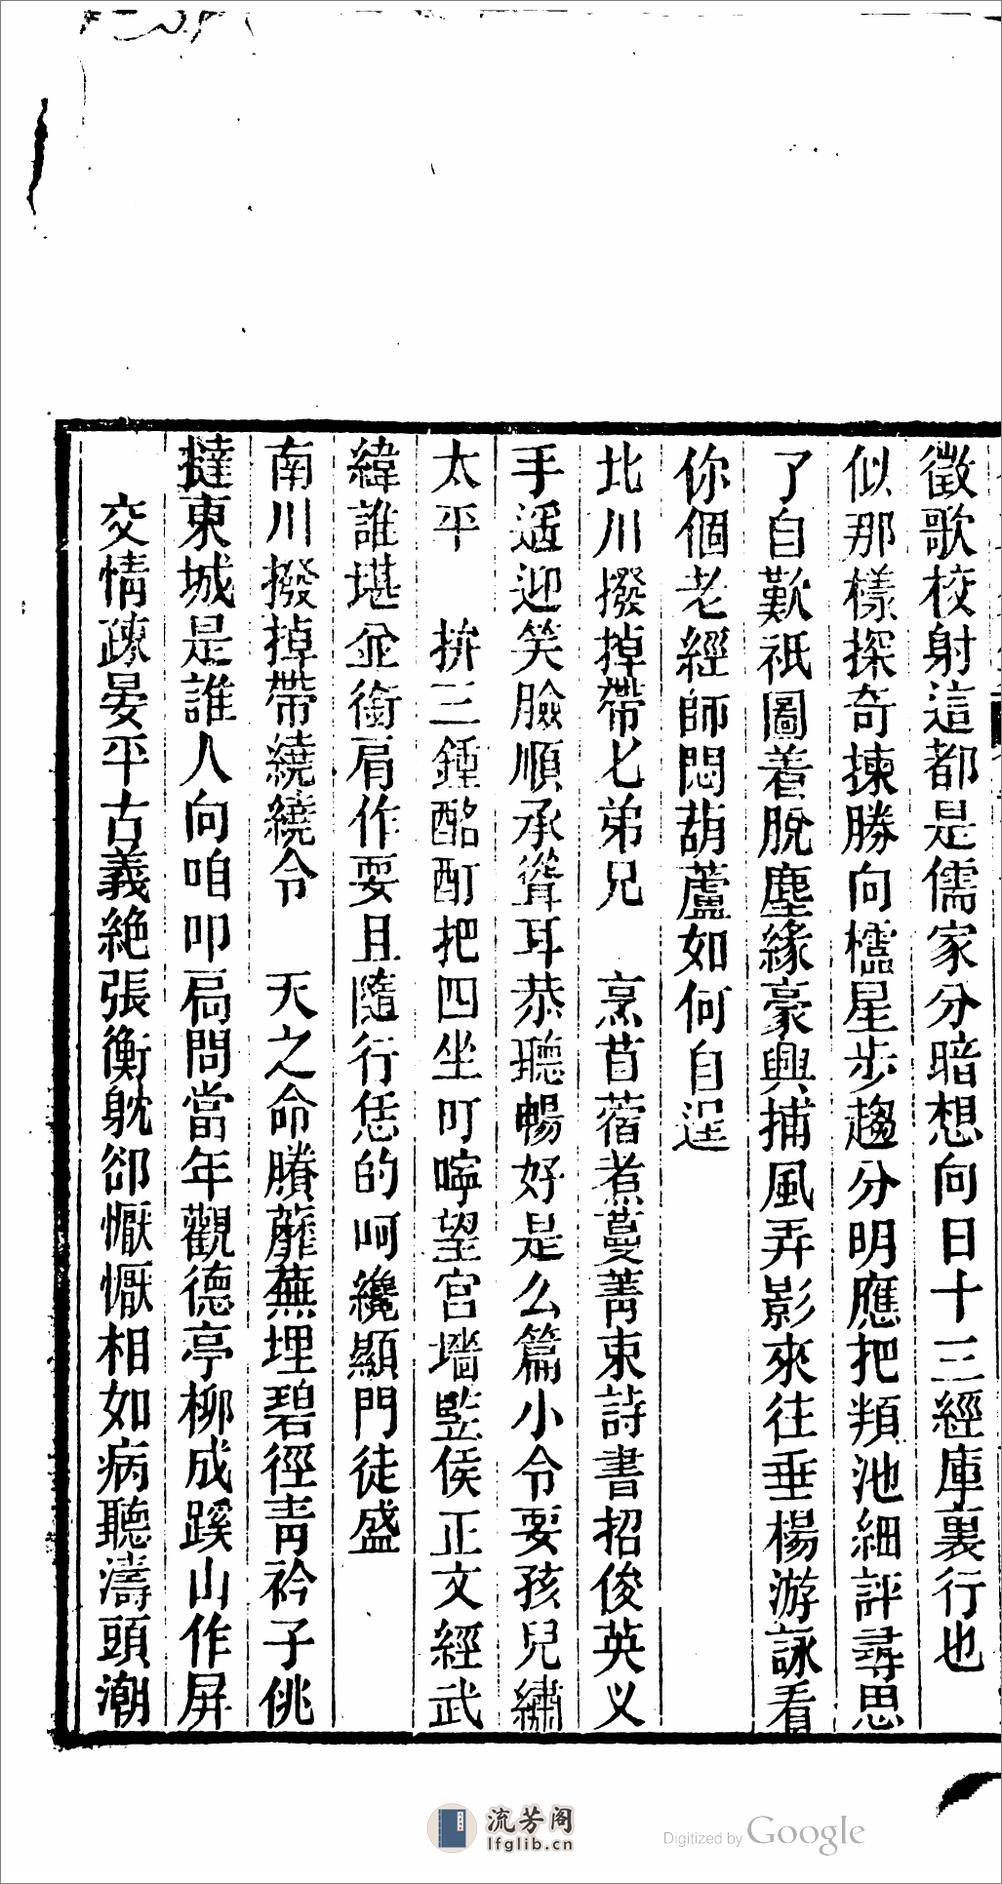 徵歌校射這都是儒家分暗想向日十三經庫裏行也
似那樣探奇揀勝向櫺星步趨分明應把頖池細評尋思
了自歎祇圖着脫塵緣豪興捕風弄影來往垂楊游詠看
你個老經師悶葫蘆如何自逞
北川撥掉帶七弟兄　烹苜蓿煮蔓菁束詩書招俊英义
手遥迎笑臉順承聳耳恭聽暢好是么篇小令耍孩兒繡
太平　拚三鍾酩酊把四坐叮嚀望宮墻竪侯正文經武
緯誰堪並銜肩作耍且隨行恁的呵纔顯門徒盛
南川撥掉帶繞繞令　天之命賸蘼蕪埋碧徑青衿子佻
撻東城是誰人向咱叩扃問當年觀德亭柳成蹊山作屏
交情疎晏平古義絶張衡躭卻懨懨相如病聽濤頭潮
流芳阁
lfglib.cn
Digitized by Google